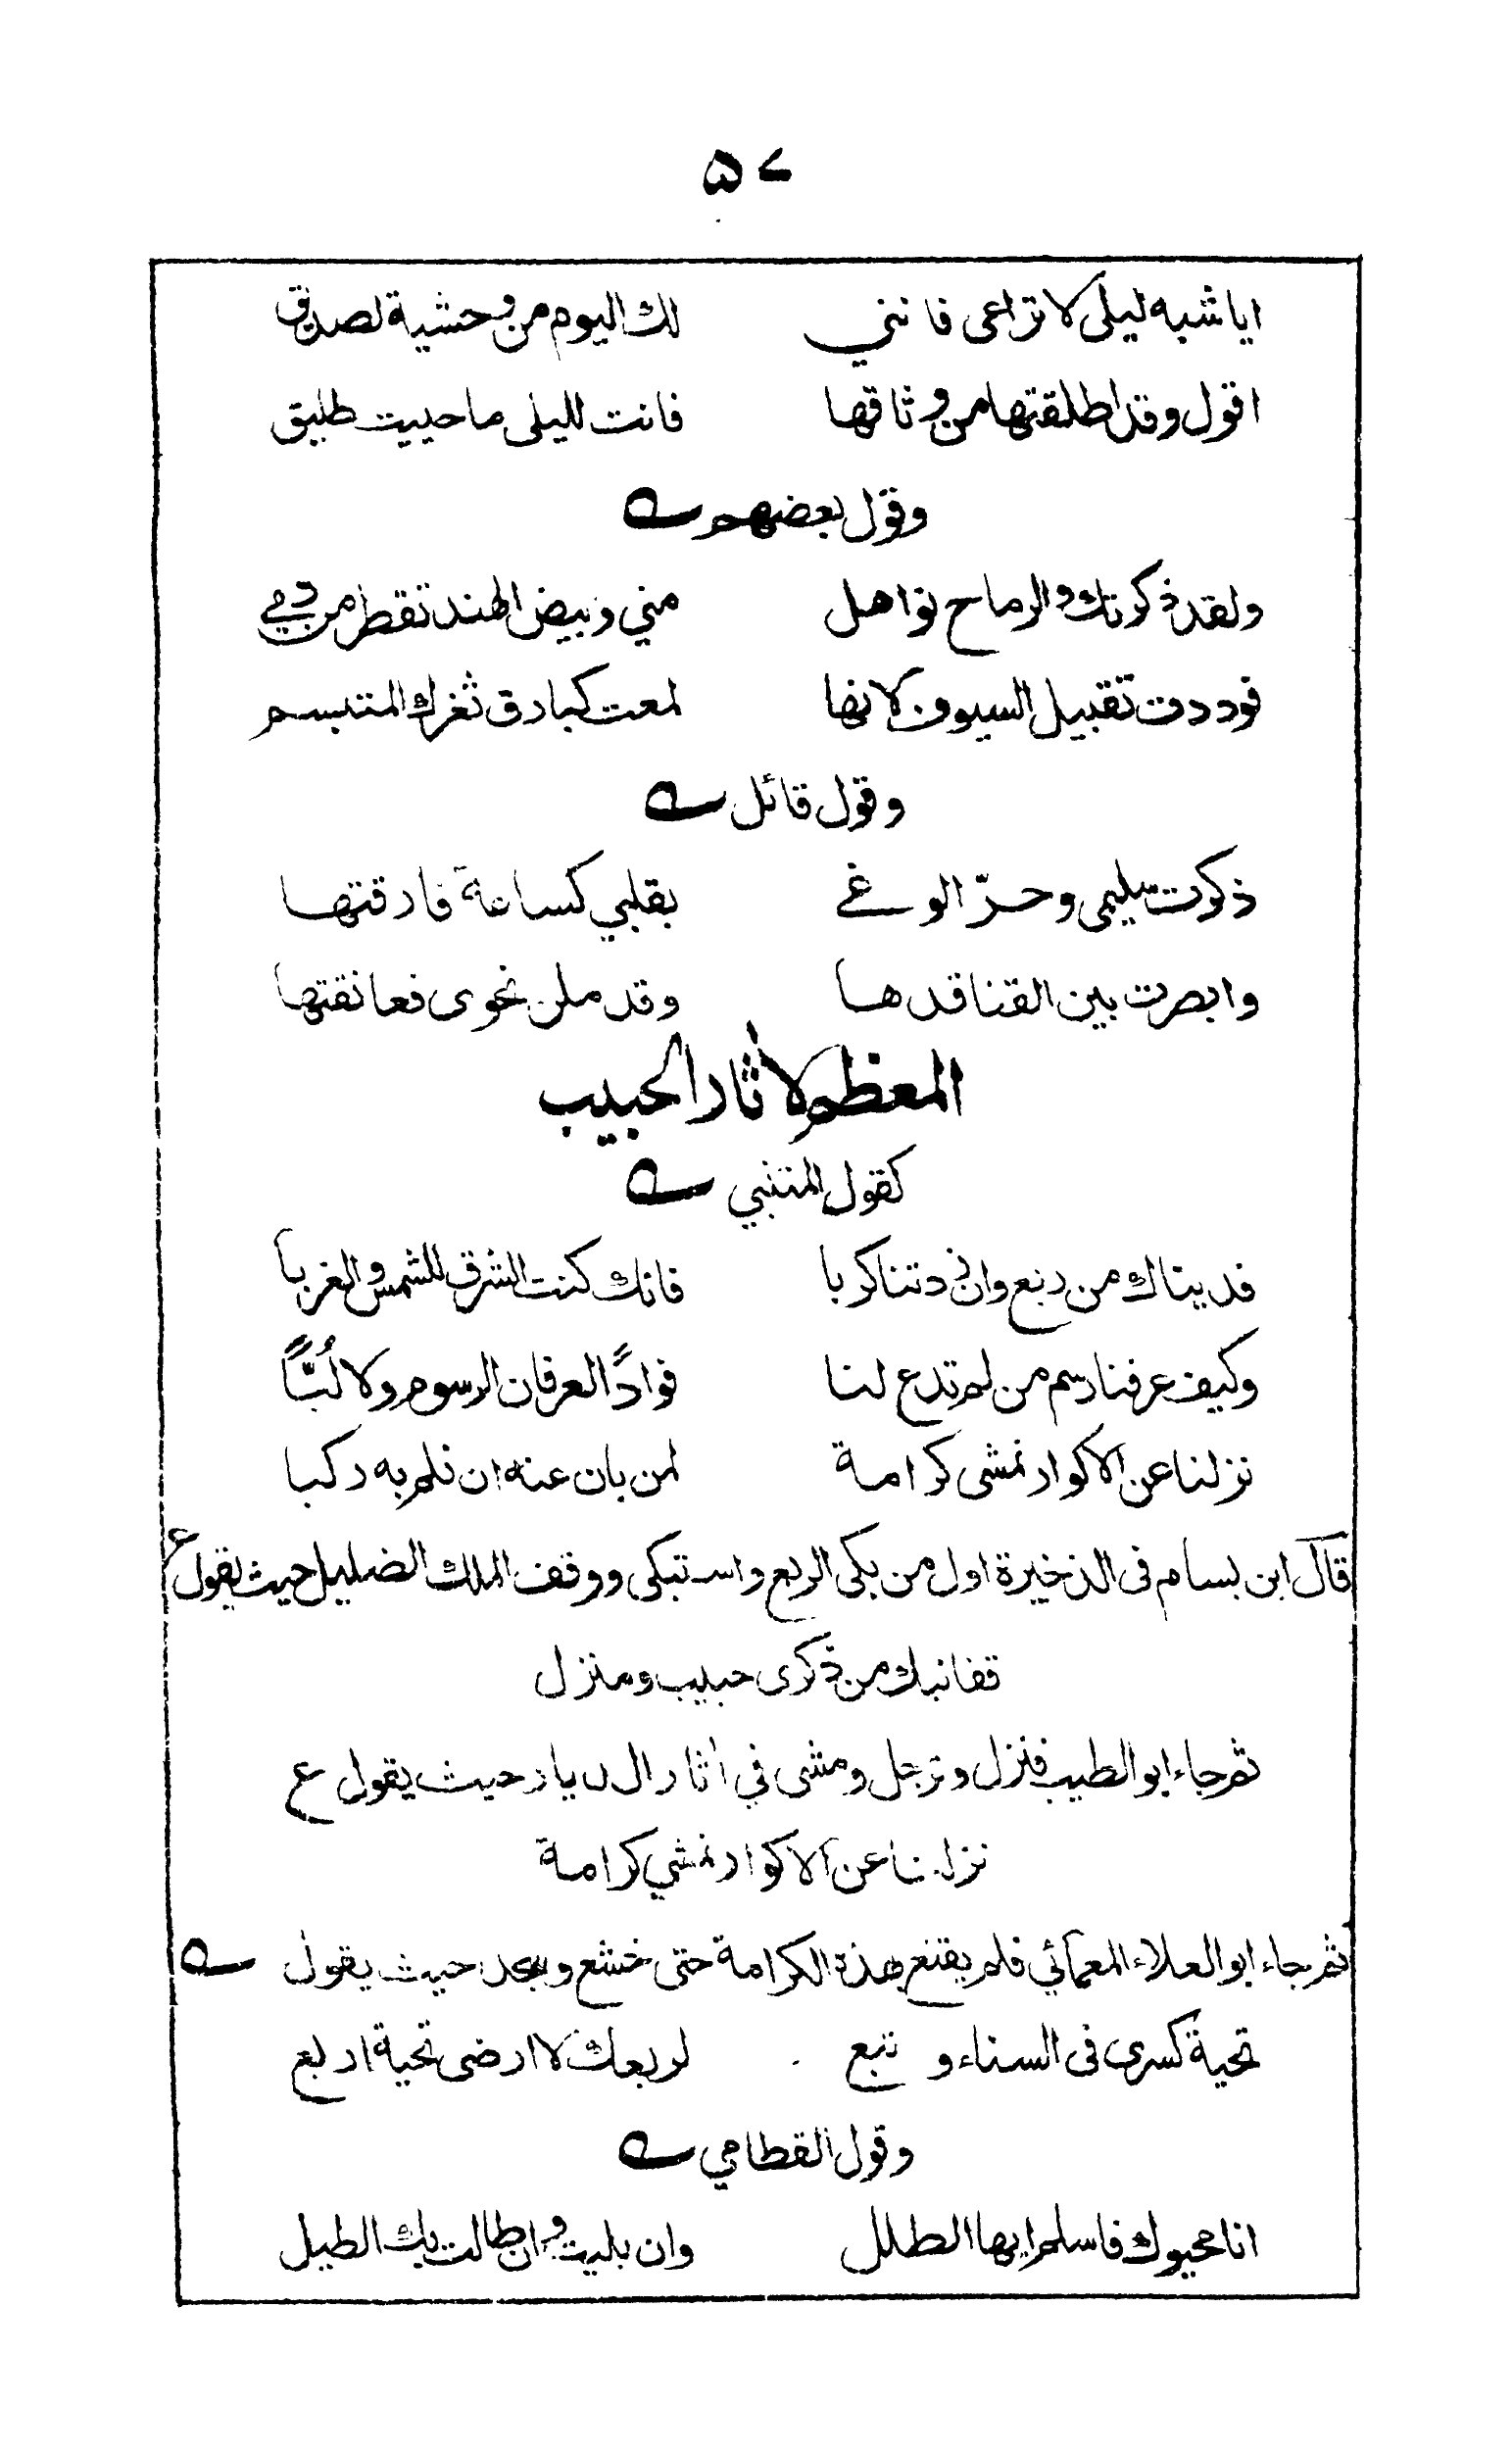 ۵۷
ايا شبه ليلى لا تراعى فانني لك اليوم من وحشية لصديق
اقول وقد اطلقتها من وثاقها فانت لليلى ما حييت طليق
وقول بعضهم
ولقد ذكرتك والرماح نواهل مني وبيض الهند تقطر من دمي
فوددت تقبيل السيوف لانها لمعت كبارق ثغرك المتبسم
وقول قائل
ذكرت سليمى وحرّ الوغى بقلبي كساعة فارقتها
وابصرت بين القنا قدها وقد ملن نحوى فعانقتها
المعظم لأثار الحبيب
كقول المتنبي
فديناك من ربع وان زدتنا كربا فانك كنت الشرق للشمس والغربا
وكيف عرفنا رسم من لم تدع لنا فوادًا لعرفان الرسوم ولا لُبًّا
نزلنا عن الاكوار نمشى كرامة لمن بان عنه ان نلم به ركبا
قال ابن بسام فى الذخيرة اول من بكى الربع واستبكى ووقف الملك الضليل حيث يقول ع
قفا نبك من ذكرى حبيب ومنزل
ثم جاء ابو الطيب فنزل وترجل ومشى في أثار الديار حيث يقول ع
نزلنا عن الاكوار نمشي كرامة
ثم جاء ابو العلاء المعري فلم يقنع بهذه الكرامة حتى خشع وسجد حيث يقول
تحية كسرى فى السناء وتبع لربعك لا ارضى تحية اربع
وقول القطامي
انا محيوك فاسلم ايها الطلل وان بليت وان طالت بك الطيل